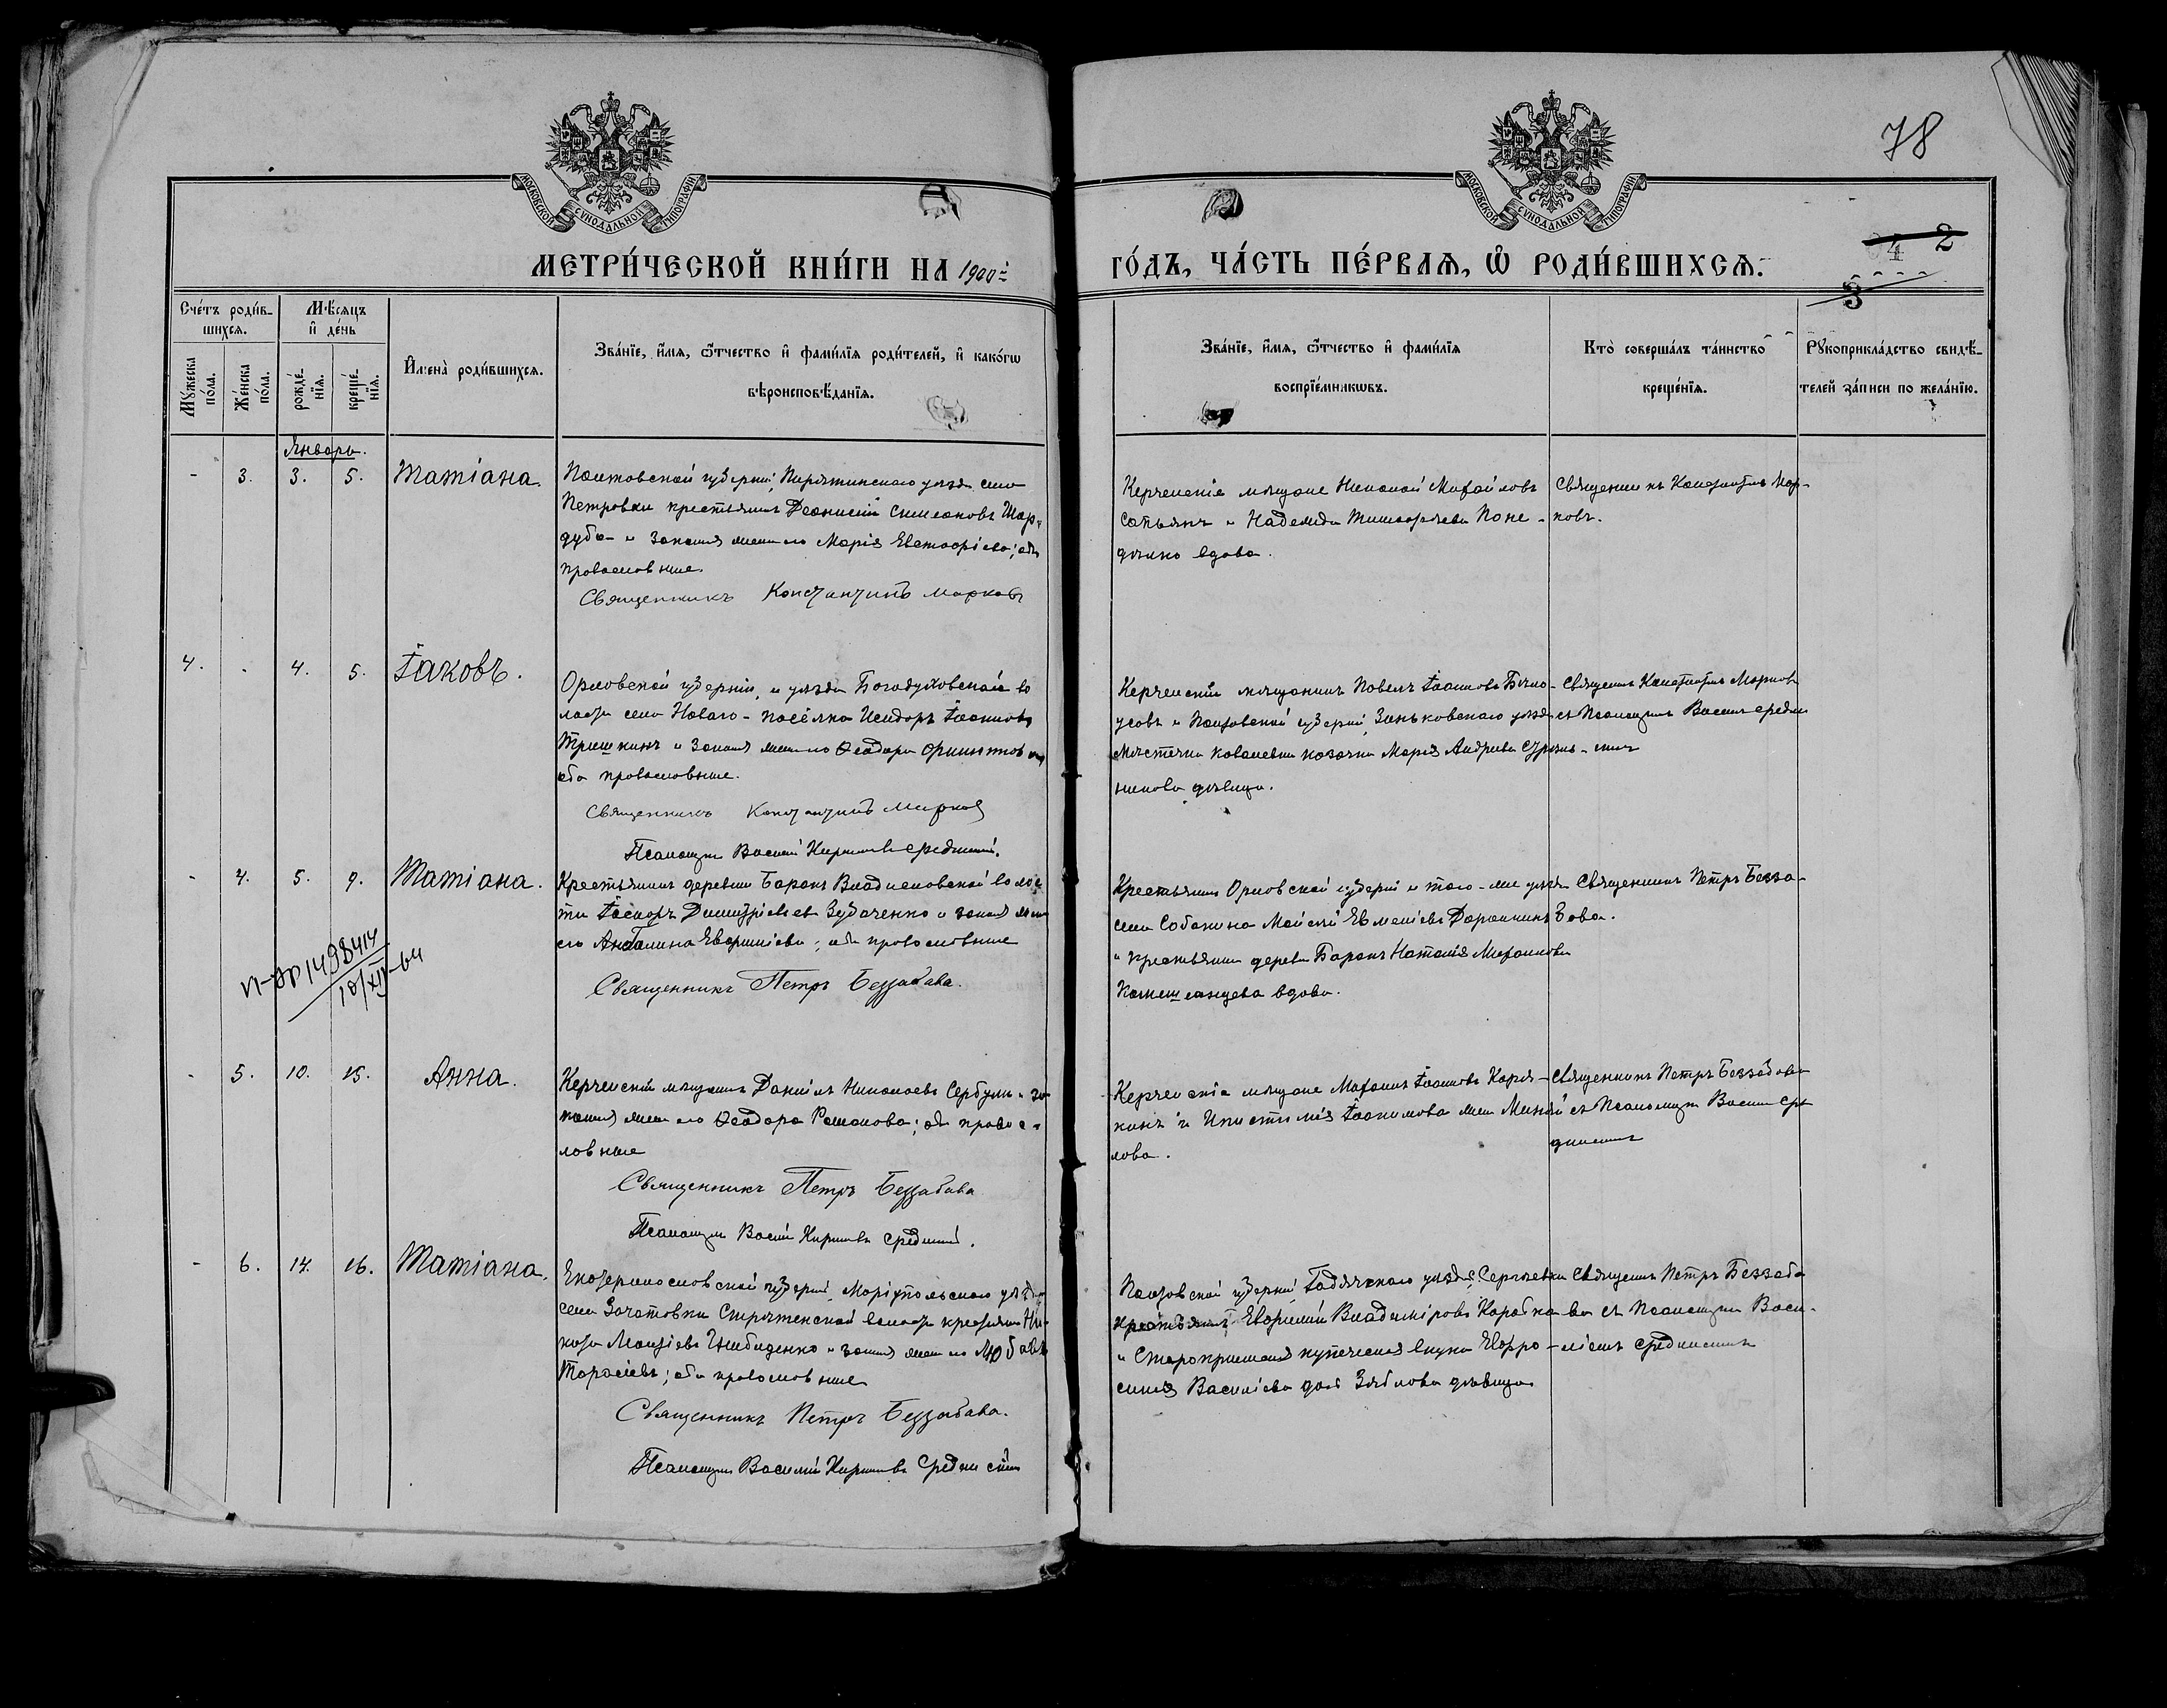 78
МОСКОВСКОЙ СѴНОДАЛЬНОЙ ТИПОГРАФІИ
МОСКОВСКОЙ СѴНОДАЛЬНОЙ ТИПОГРАФІИ
МЕТРИ́ЧЕСКОЙ КНИ́ГИ НА 1900й
ГО́ДЪ, ЧА́СТЬ ПЕ́РВАЯ, Ѡ РОДИ́ВШИХСЯ.
4 2
3
Сче́тъ роди́в-
шихся.
Мꙋ́жеска по́ла.
Же́нска по́ла.
Мѣ́сяцъ
и де́нь
рожде́-нїя.
креще́-нїя.
Имена̀ роди́вшихся.
Зва́нїе, и́мя, ѻ҆́тчество и фами́лїя роди́телей, и како́гѡ
вѣроисповѣ́данїя.
Зва́нїе, и́мя, ѻ҆́тчество и фами́лїя
воспрїе́мникѡвъ.
Кто̀ соверша́лъ та́инство
креще́нїя.
Рꙋкоприкла́дство свидѣ́-
телей за́писи по жела́нїю.
Январь.
- 3. 3. 5. Татіана.
Полтовской губерніи, Пирятинскаго уезда села
Петровки крестьянинъ Діонисій Симеоновъ Шар-
дуба и законная жена его Марія Евстафіева; оба
православные.
Священникъ Константинъ Марковъ
Керченскіе мещане Николай Михайловъ
и Надежда Тимофеева Поне-
дѣлко вдова.
Священникъ Константинъ Мар-
ковъ.
4. - 4. 5. Іаковъ.
Орловской губерніи, и уезда Богодуховской во
лости села Новаго-посёлка Исидоръ Іоанновъ
Тришкинъ и законная жена его Ѳеодора
оба православные.
Священникъ Константинъ Марковъ
Псаломщикъ Василій Кириловъ Срединскій.
Керченскій мещанинъ Павелъ Іоанновъ Бѣло-
усовъ и Полтовской губерніи, Зиньковскаго уезда
мѣстечка Ковалевки козачка Марія Андреева
дѣвица.
Священникъ Константинъ Марковъ
съ Псаломщикомъ Василіемъ Средин-
скимъ
- 4. 5. 9. Татіана.
Крестьянинъ деревни Баранъ Владиславовской волос
ти Димитріевъ Зубаченко и законная жена
его Евфиміева; оба православные
Священникъ Петръ Беззабава.
И-АП 1498414
18/XII-64
Крестьянинъ Орловской губерніи и того-же уезда
села Собакина Моисей Доронкинъ
и крестьянка деревни Баранъ Наталія
вдова.
Священникъ Петръ Безза-
бава.
- 5. 10. 15. Анна.
Керченскій мещанинъ Даніилъ Николаевъ Сербулъ и за-
конная жена его Ѳеодора Романова; оба правос-
лавные
Священникъ Петръ Беззабава
Псаломщикъ Василій Кириловъ Срединскій.
Керченскіе мещане Іоанновъ Каря-
кинъ и Іоакимова
лова.
Священникъ Петръ Беззабава
съ Псаломщикомъ Василіемъ Сре
динскимъ
- 6. 14. 16. Татіана.
Екатеринославской губерніи, Маріупольскаго уезда
села Зачатовки волости крестьянинъ Ни-
и законная жена его Любовь
Тарасіева; оба православные
Священникъ Петръ Беззабава.
Псаломщикъ Василій Кириловъ Срединскій
Полтовской губерніи Гадячскаго уезда с. Сергеевки
крестьянинъ Владиміровъ Коробка
и Старокрымская купеческая внука Евфро-
синія Васильева дочь Зяблова дѣвица
Священникъ Петръ Беззаба
ва съ Псаломщикомъ Васи-
ліемъ Срединскимъ